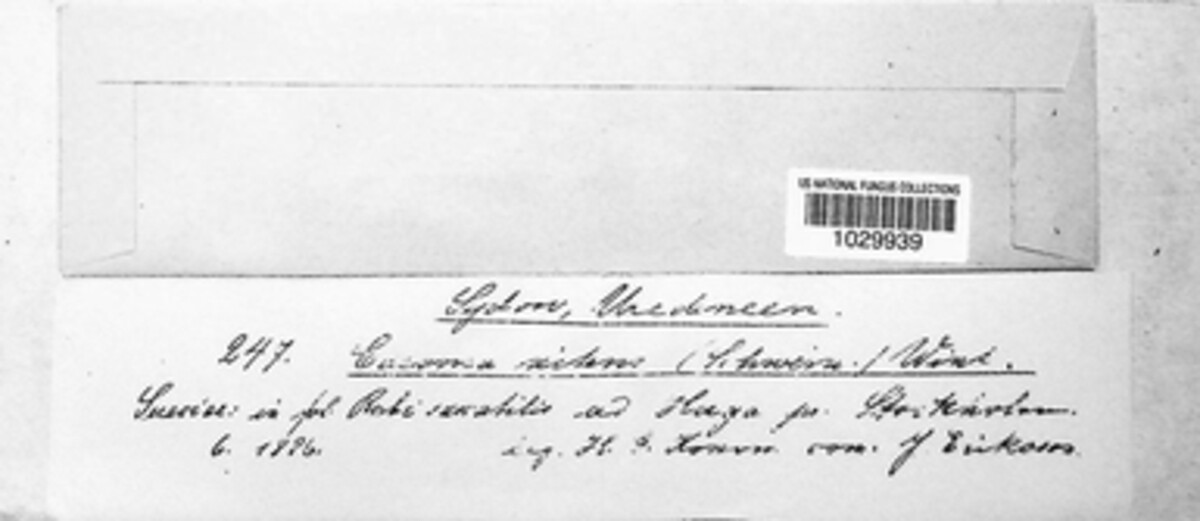 US NATIONAL FUNGUS COLLECTIONS
1029939
Sydow, Uredineen.
247. Caeoma nitens (Schwein.) Wint.
Sueciae: in fol. Rubi saxatilis ad Haga pr. Stockholm.
6. 1886. leg. H. com. J. Eriksson.